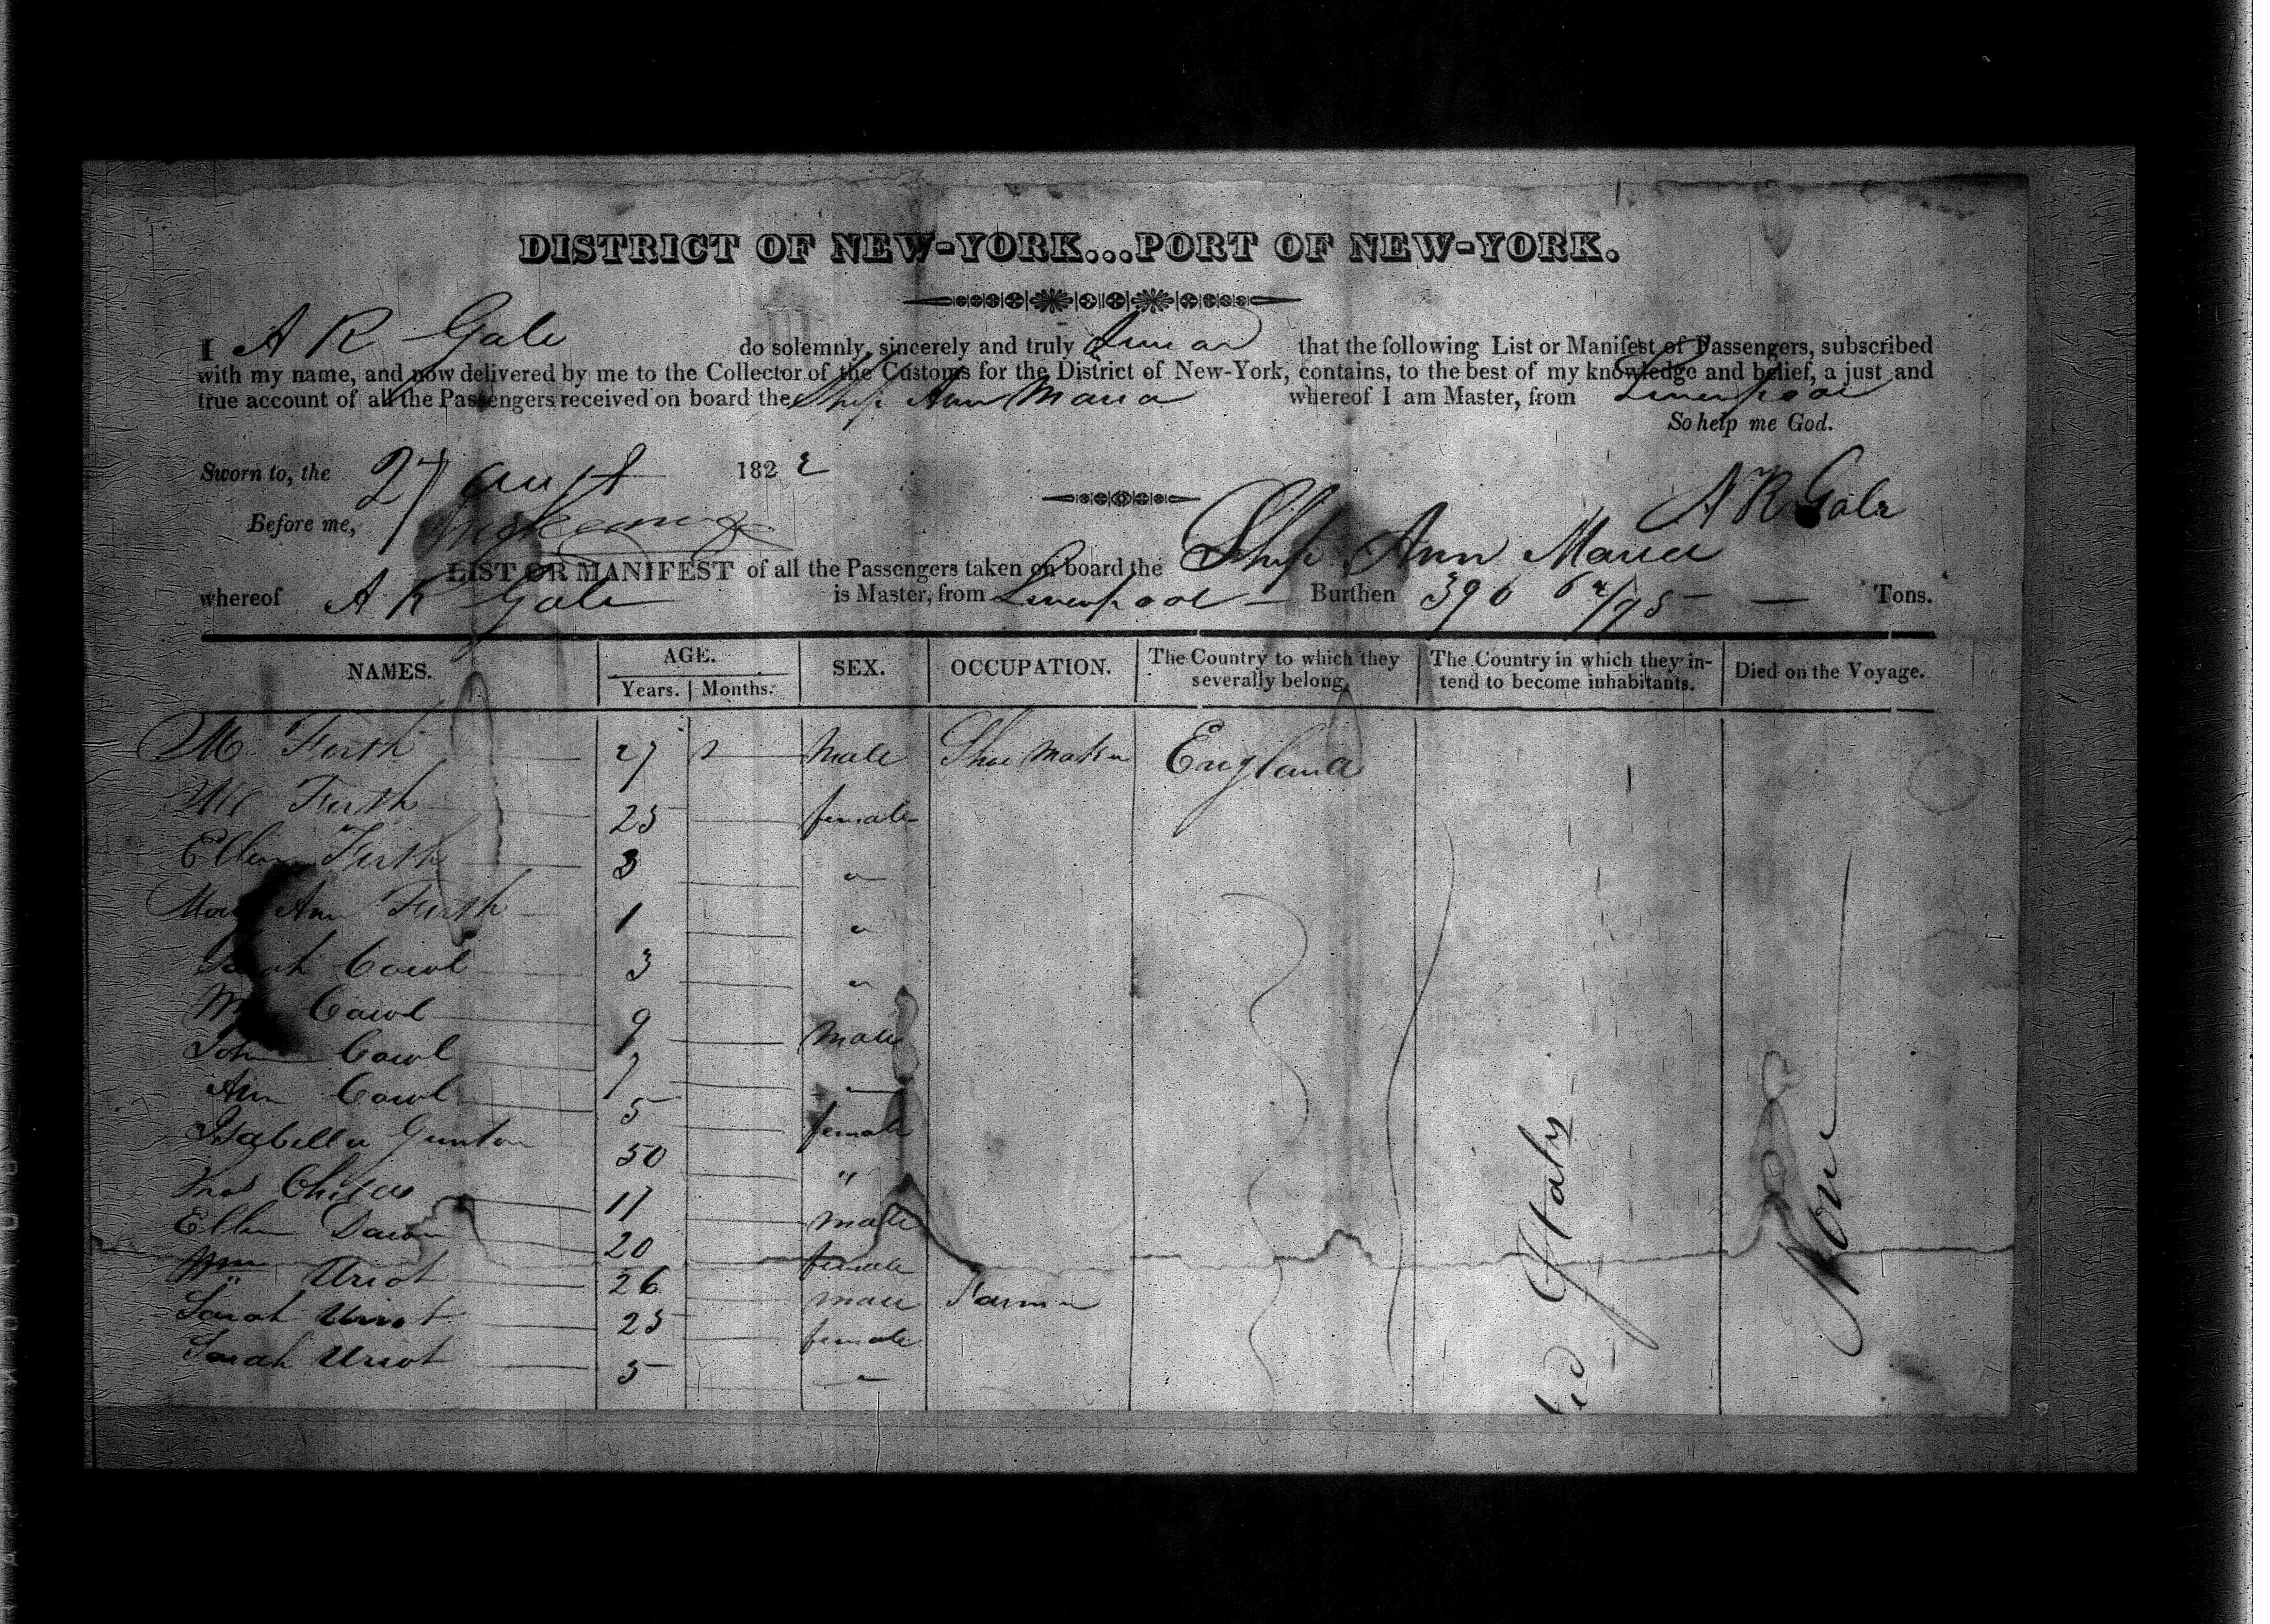 DISTRICT OF NEW-YORK...PORT OF NEW-YORK.
I A R Gale do solemnly, sincerely and truly that the following List or Manifest of Passengers, subscribed
with my name, and now delivered by me to the Collector of the Customs for the District of New-York, contains, to the best of my knowledge and belief, a just and
true account of all the Passengers received on board the Ship Ann Maria whereof I am Master, from Liverpool
So help me God.
Sworn to, the 27 1822
A R Gale
Before me,
LIST OR MANIFEST of all the Passengers taken on board the Ship Ann Maria
whereof A R Gale is Master, from Liverpool Burthen 396 /95 Tons.
NAMES. AGE. Years. Months. SEX. OCCUPATION. The Country to which they severally belong. The Country in which they intend to become inhabitants. Died on the Voyage.
M. Firth 27 male Shoe maker England
Firth 25 female
Ellen Firth 3 "
Mary Ann Firth 1 "
Sarah Cowl 3 "
Cowl 9 male
John Cowl 7 "
Ann Cowl 5 female
Isabella Gunton 50 "
11 male
Ellen 20 female
Wm Uriot 26 male Farmer
Sarah Uriot 25 female
Sarah Uriot 5 "
None